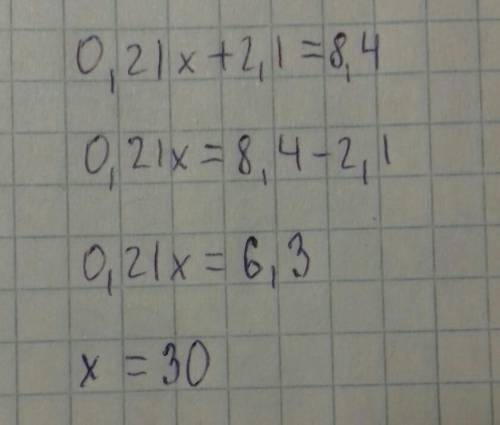 0,21x+2,1=8,4
0,21x=8,4-2,1
0,21x=6,3
x=30